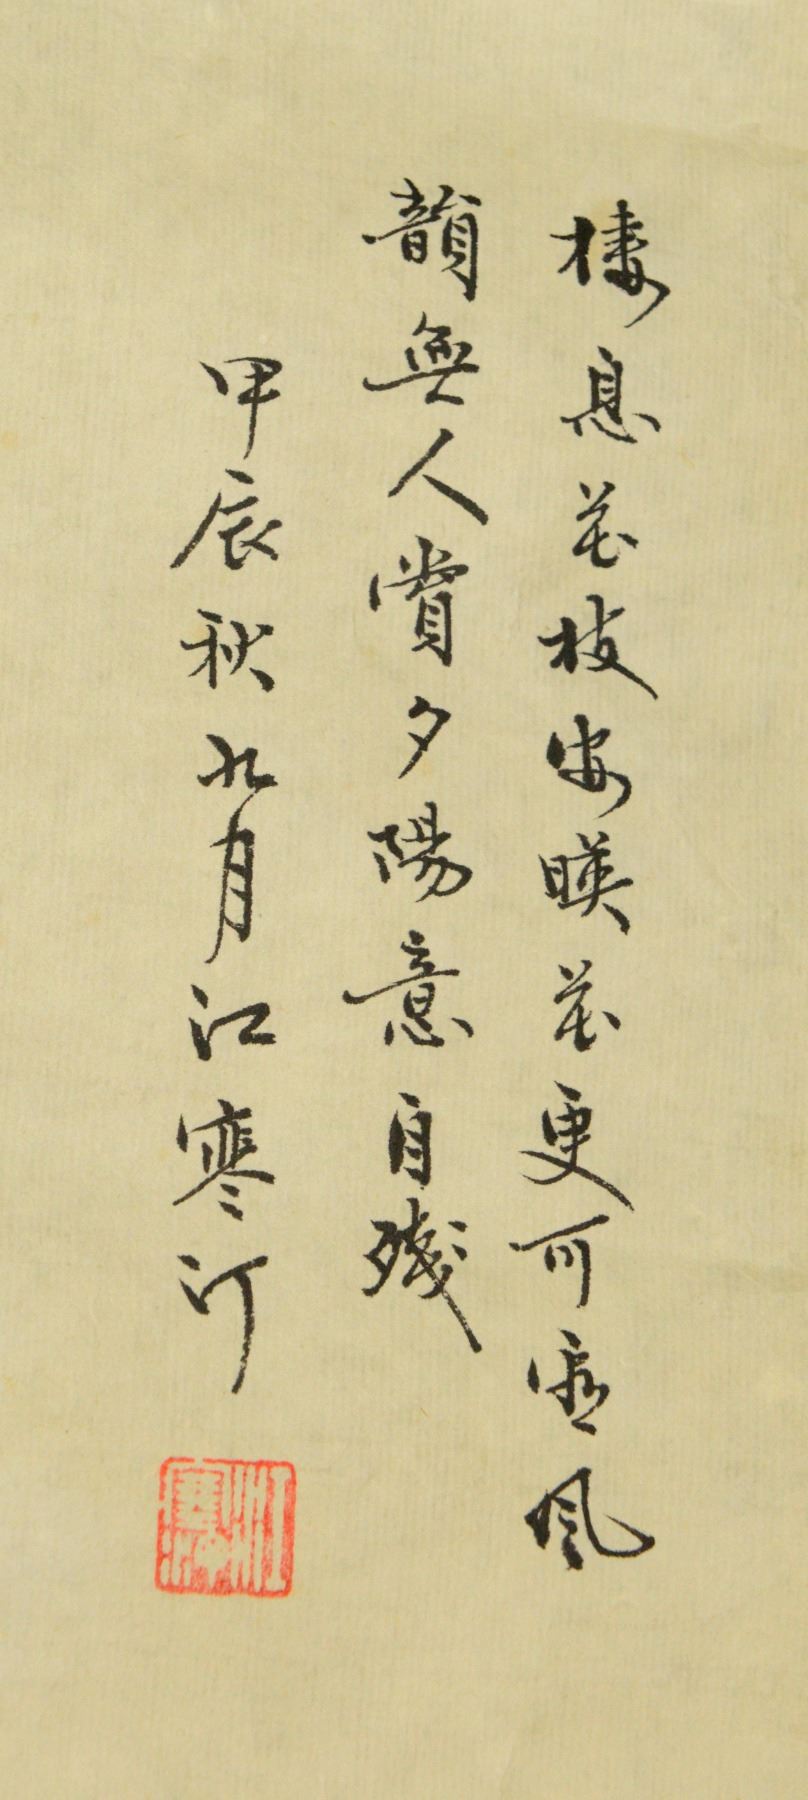 棲息花枝安暎花更可風
韻無人賞夕陽意自殘
甲辰秋九月江寒汀